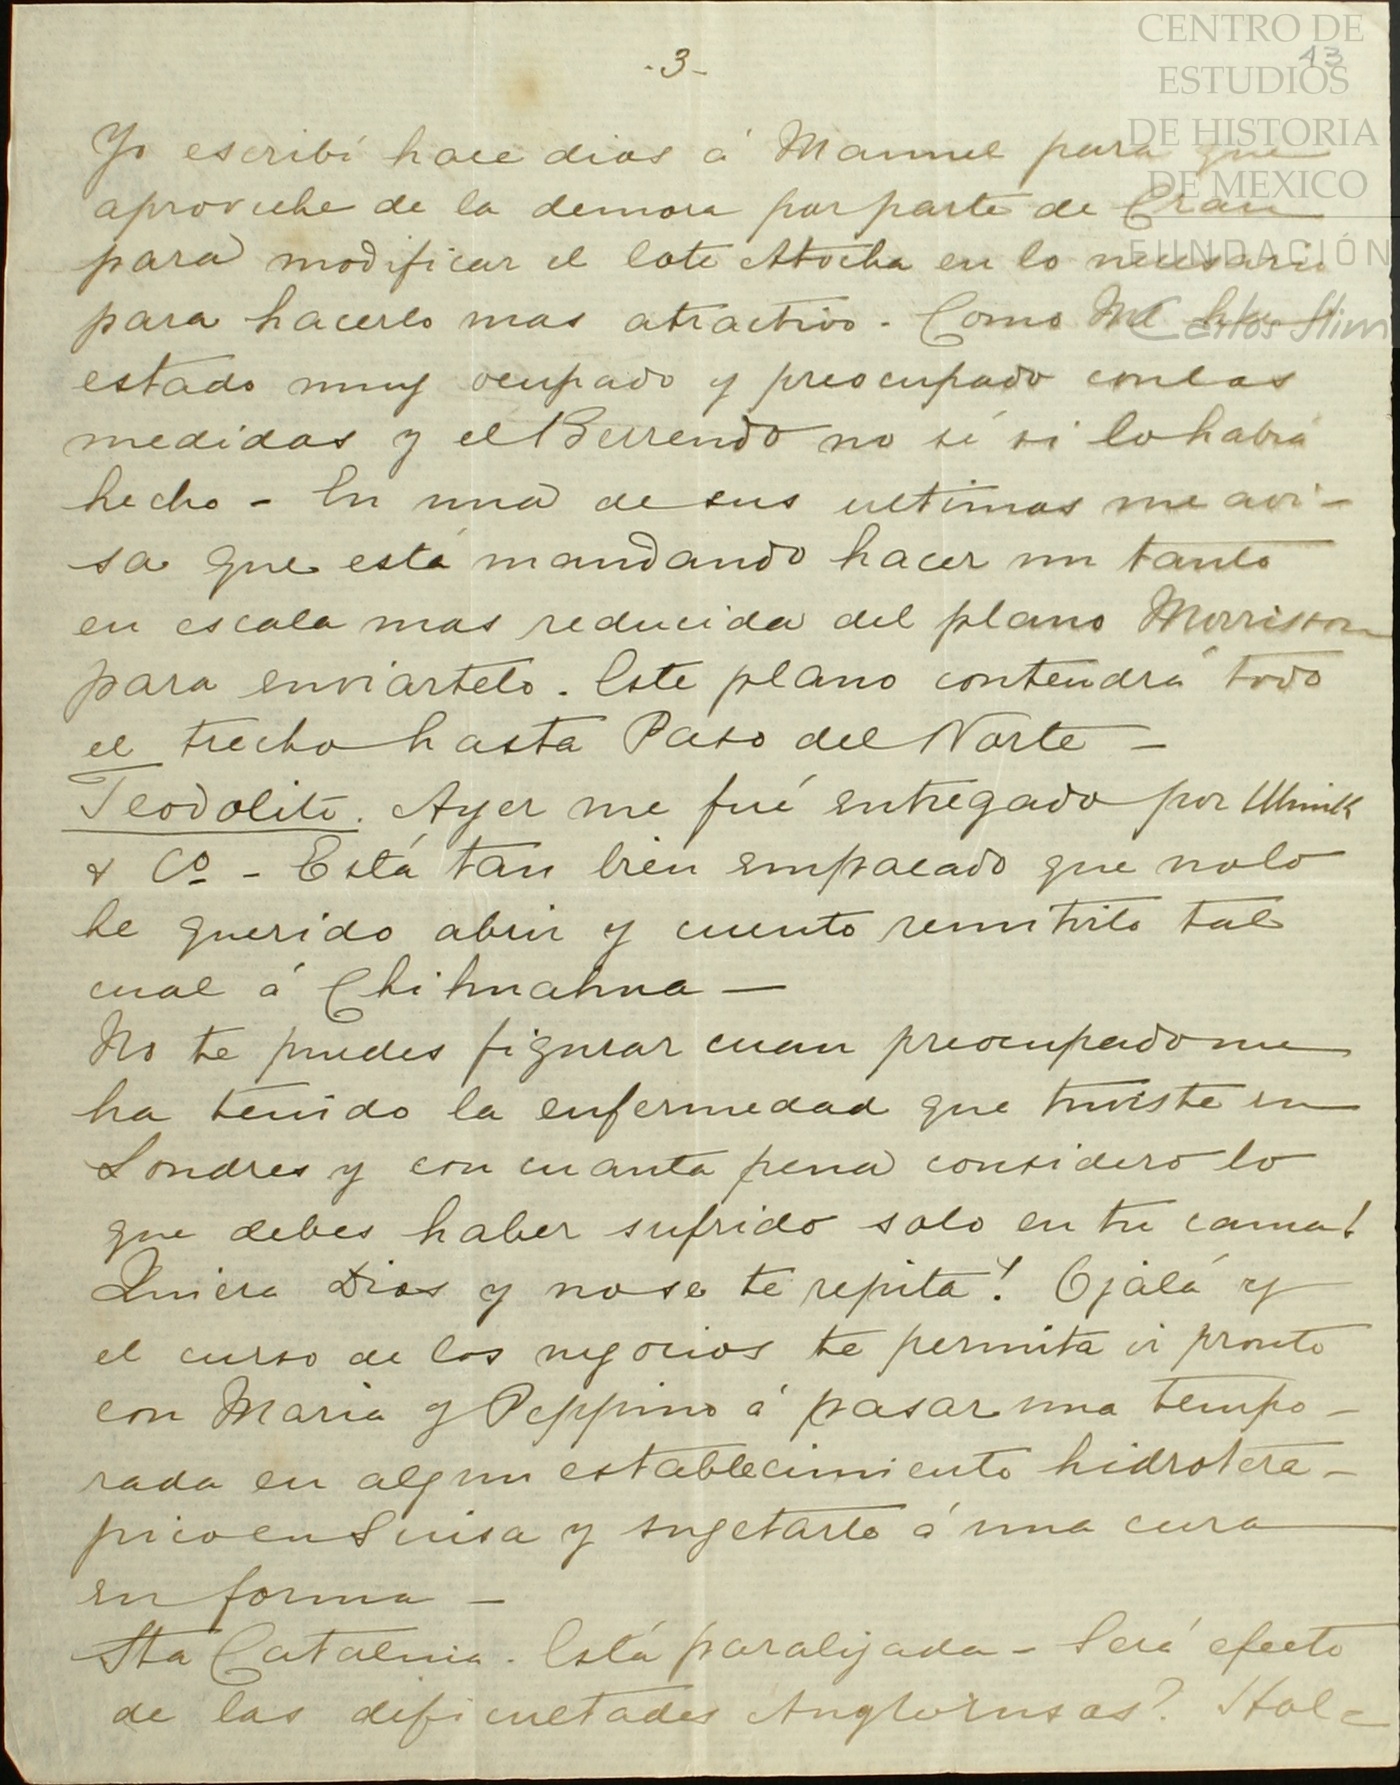 CENTRO DE
ESTUDIOS
DE HISTORIA
DE MEXICO
FUNDACIÓN
Carlos Slim
13
-3-
Yo escribí hace dias á Manuel para que
aproveche de la demora por parte de
para modificar el lote Atocha en lo necesario
para hacerlo mas atractivo. Como ha
estado muy ocupado y preocupado con las
medidas y el Berrendo no sé si lo habrá
hecho - En una de sus ultimas me avi-
sa que está mandando hacer un tanto
en escala mas reducida del plano Morrison
para enviartelo. Este plano contendrá todo
el trecho hasta Paso del Norte -
Teodolito. Ayer me fué entregado por
& Co - Está tan bien empacado que no lo
he querido abrir y cuento remitirlo tal
cual á Chihuahua -
No te puedes figurar cuan preocupado me
ha tenido la enfermedad que tuviste en
Londres y con cuanta pena considero lo
que debes haber sufrido solo en tu cama!
Quiera Dios y no se te repita! Ojalá y
el curso de los negocios te permita ir pronto
con Maria y Peppino á pasar una tempo-
rada en algun establecimiento hidrotera-
pico en Suisa y sugetarte á una cura
en forma -
Sta Catalina. Está paralizada - Será efecto
de las dificultades Anglorusas?